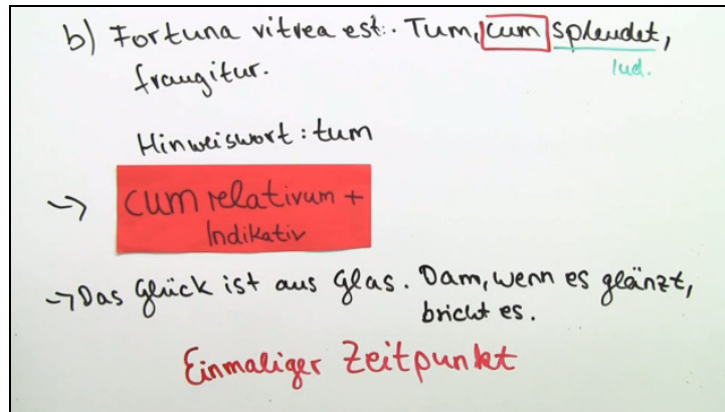 b) Fortuna vitrea est. Tum, cum splendet,
Ind.
frangitur.
Hinweiswort: tum
→ cum relativum +
Indikativ
→ Das Glück ist aus Glas. Dann, wenn es glänzt,
bricht es.
Einmaliger Zeitpunkt